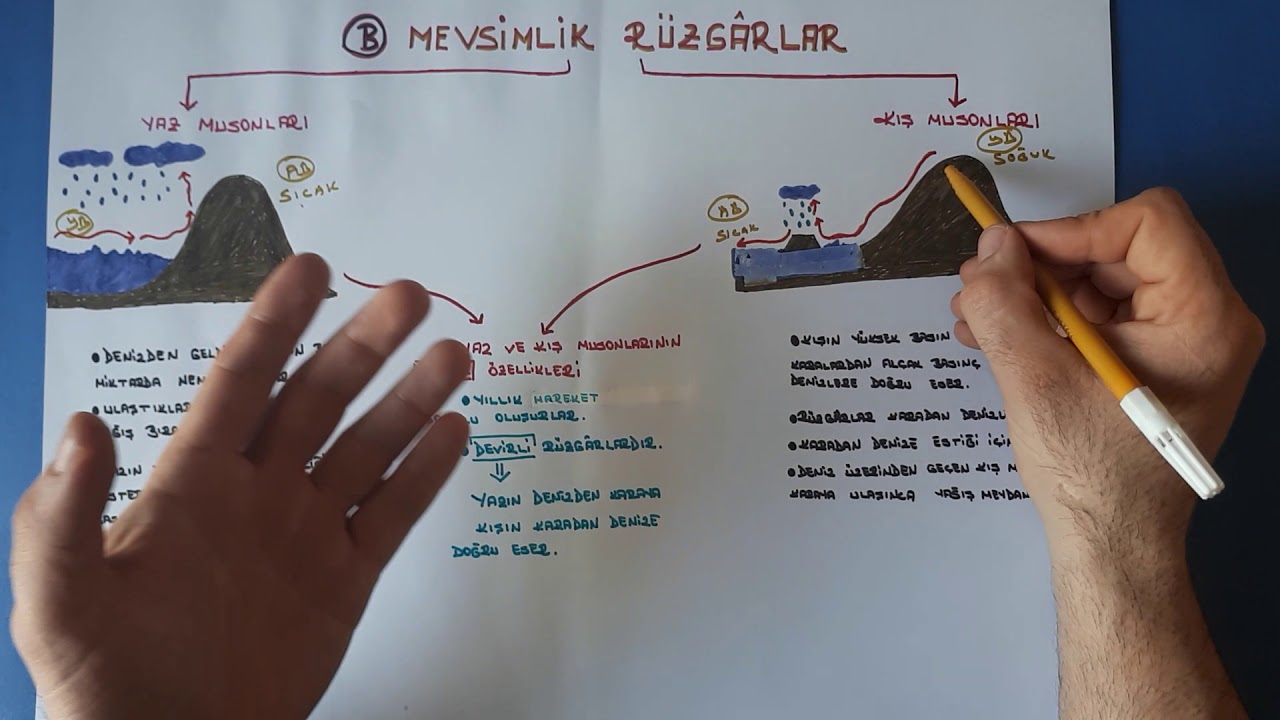 B MEVSİMLİK RÜZGÂRLAR
YAZ MUSONLARI
AB
SICAK
YB
KIŞ MUSONLARI
YB
SOĞUK
AB
SICAK
DENİZDEN
MİKTARDA NEM
YAZ VE KIŞ MUSONLARININ
ÖZELLİKLERİ
YILLIK HAREKET
OLUŞURLAR.
DEVİRLİ RÜZGÂRLARDIR.
YAZIN DENİZDEN KARAYA
KIŞIN KARADAN DENİZE
DOĞRU ESER.
KIŞIN YÜKSEK BASIN
KARALARDAN ALÇAK BASINÇ
DENİZLERE DOĞRU ESER.
RÜZGÂRLAR KARADAN
KARADAN DENİZE ESTİĞİ İÇİN
DENİZ ÜZERİNDEN GEÇEN KIŞ M
KARAYA ULAŞINCA YAĞIŞ MEYDAN